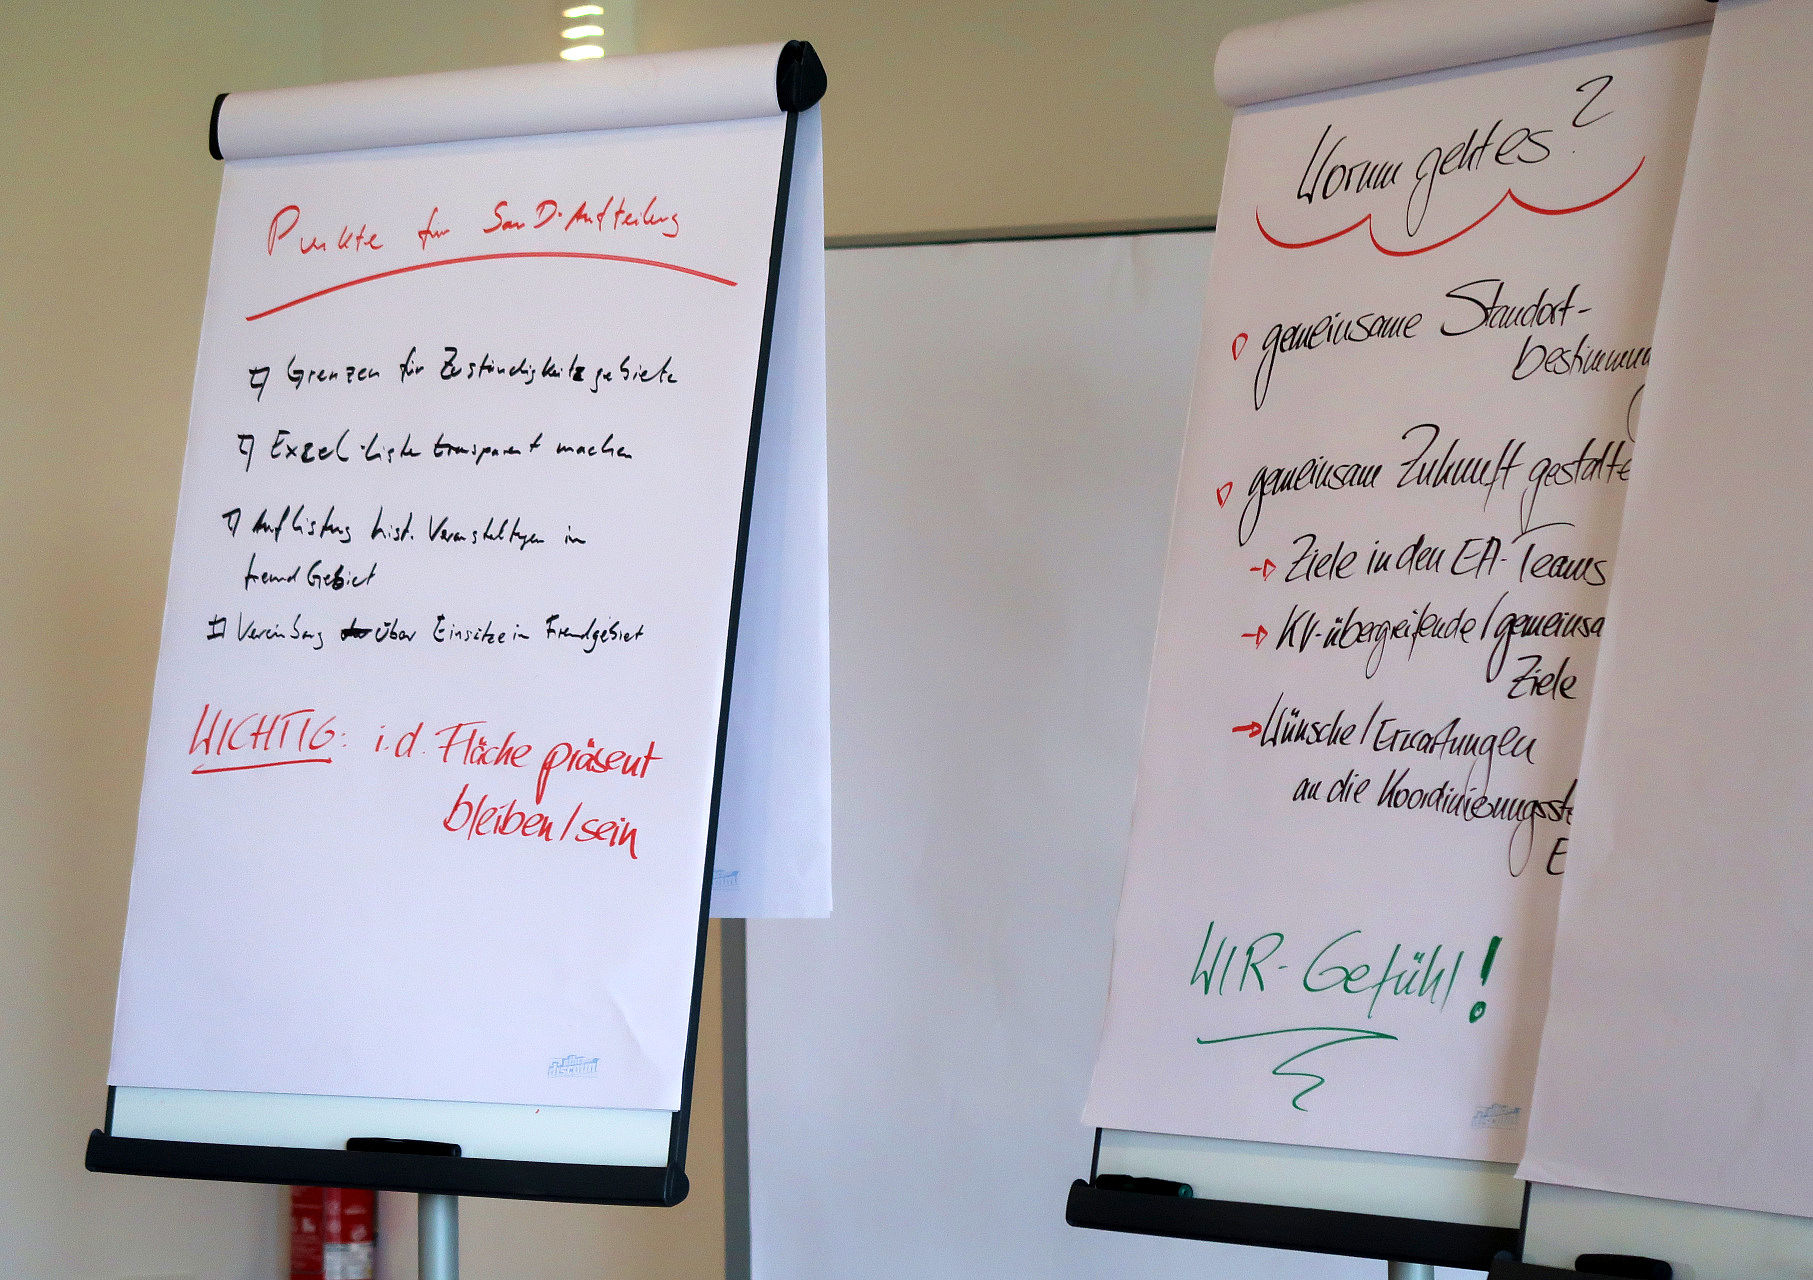 Punkte für SanD-Aufteilung
Grenzen für Zuständigkeitsgebiete
Exzel-Liste transparent machen
Auflistung hist. Veranstaltungen in
fremd Gebiet
Vereinbarg über Einsätze in Fremdgebiet
WICHTIG: i.d. Fläche präsent
bleiben/sein
discount
Worum geht es?
gemeinsame Standort-
bestimmun
gemeinsam Zukunft gestalte
Ziele in den EA-Teams
KV-übergreifende/gemeinsa
Ziele
Wünsche/Erwartungen
an die Koordinierungsst
E
WIR-Gefühl!